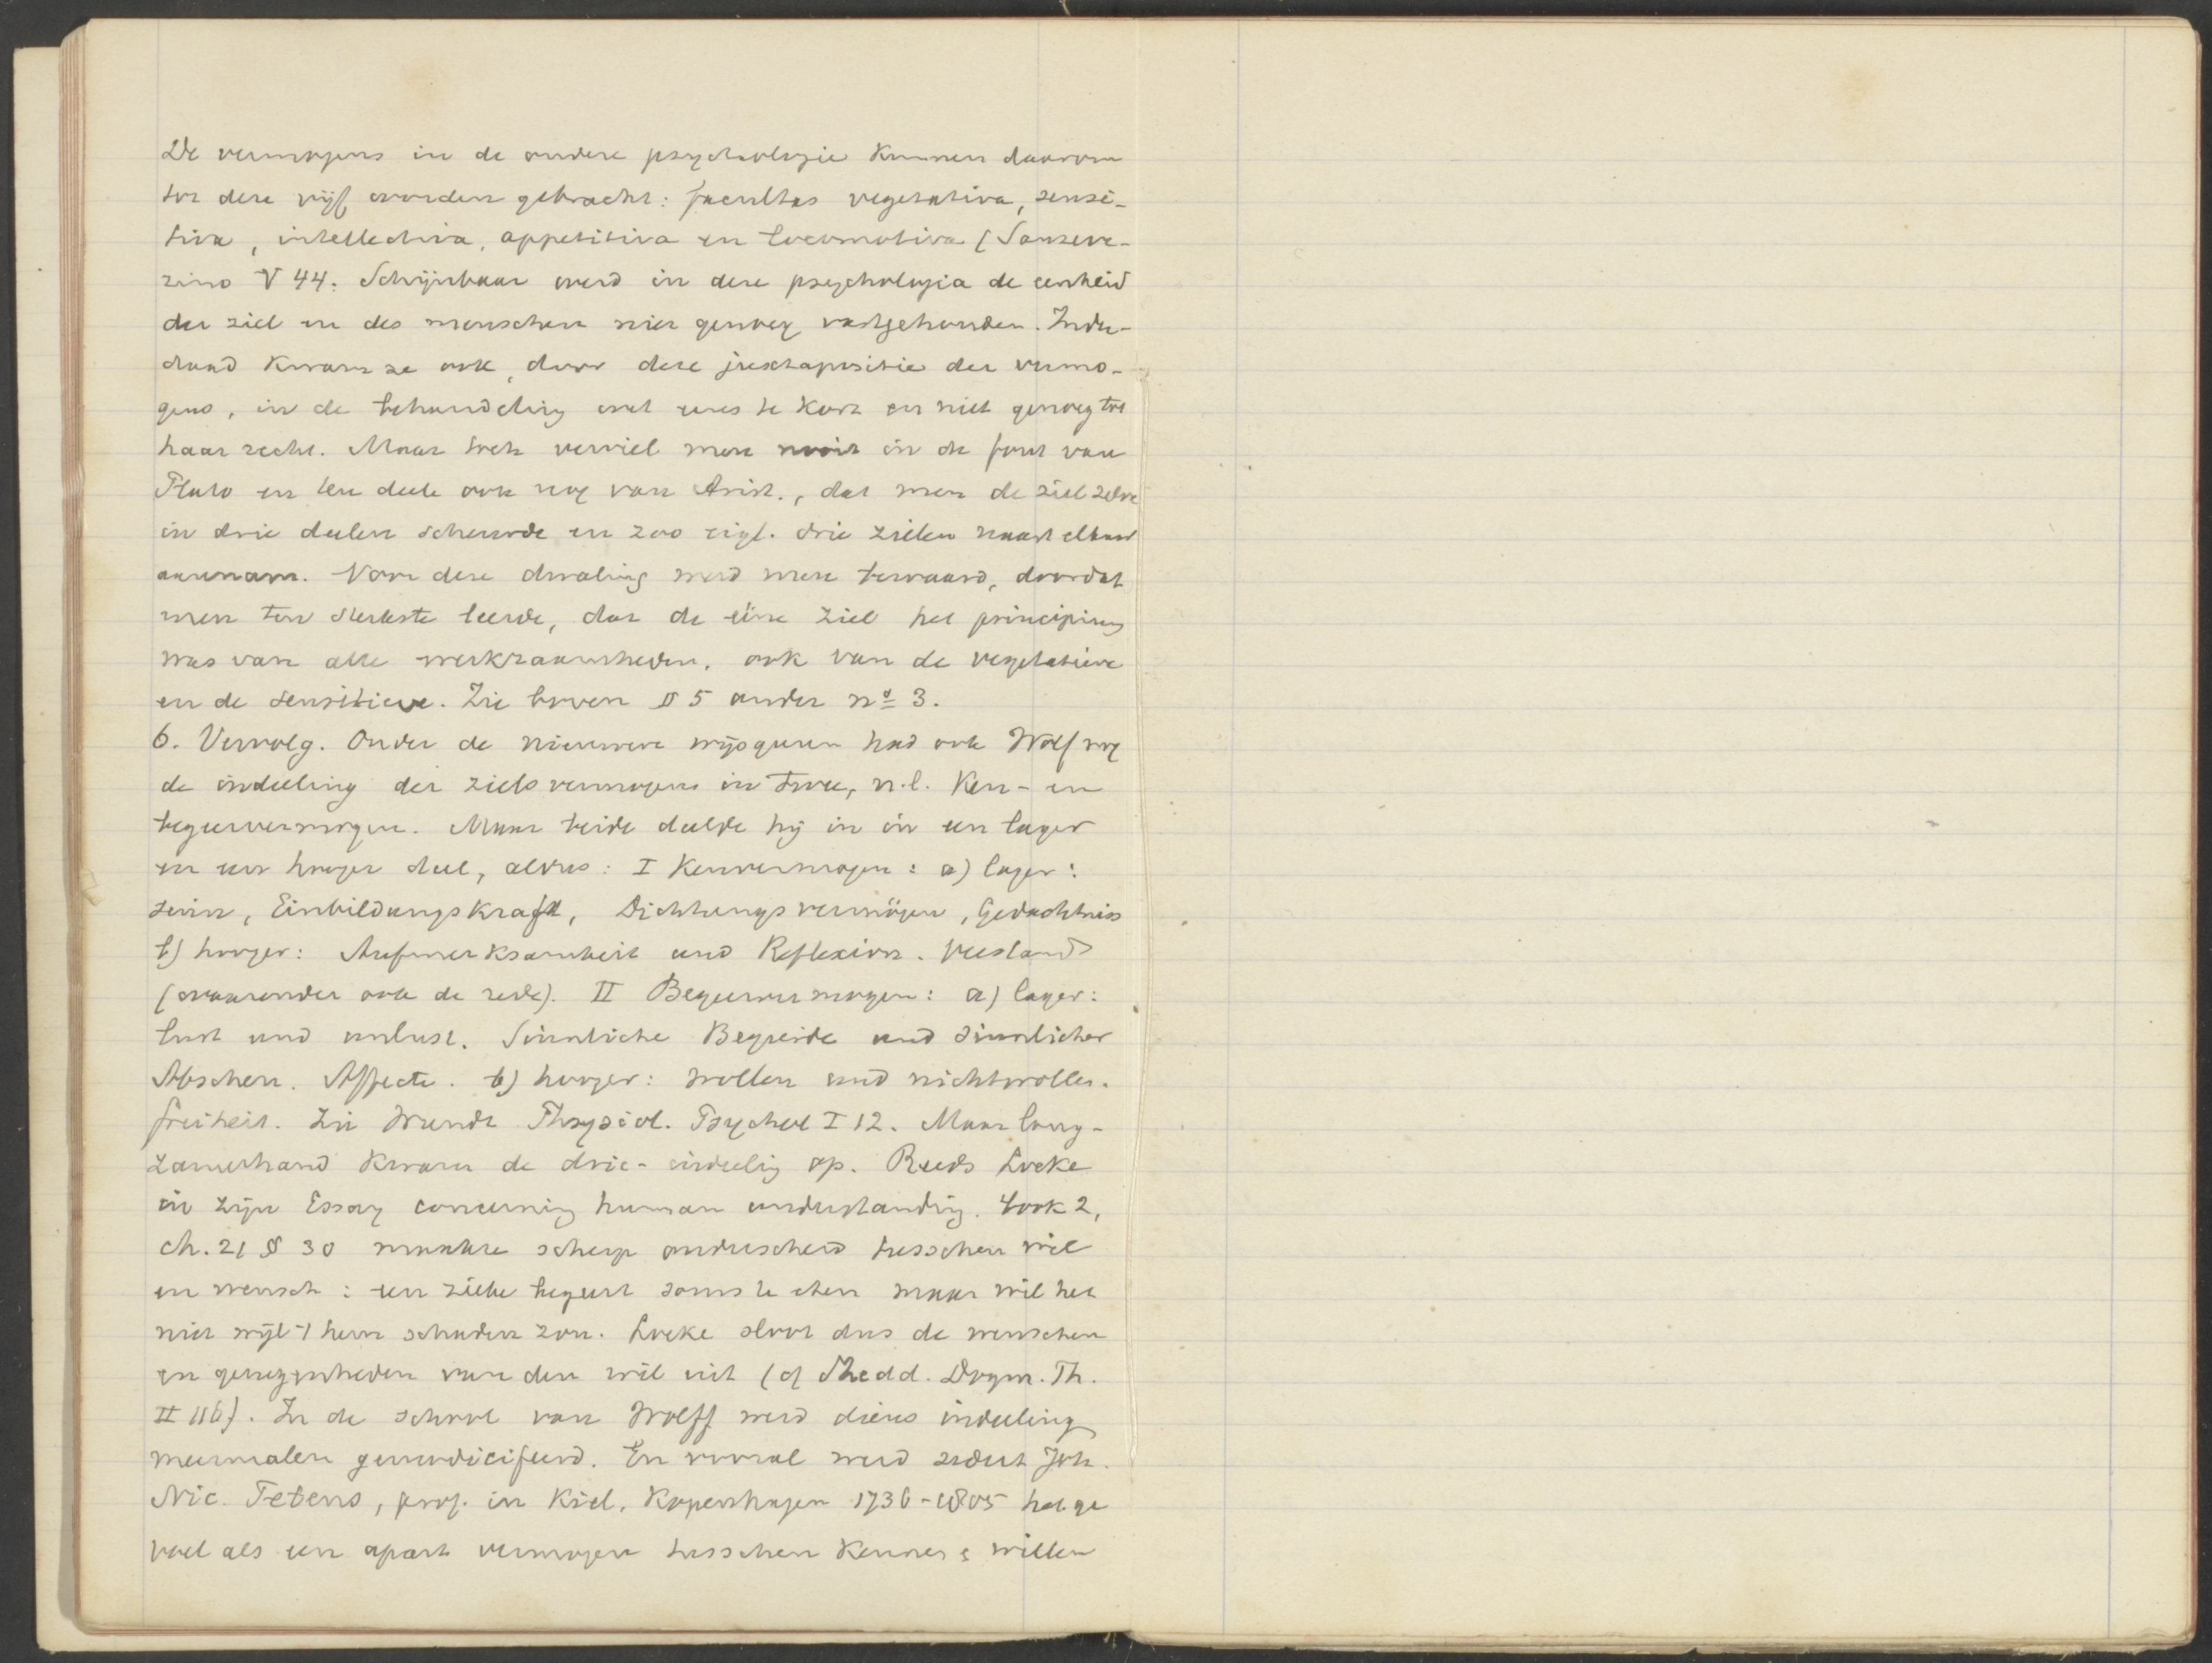 De vermogens in de oudere psychologie kunnen daarom
tot deze vijf worden gebracht: facultas vegetativa, sensi-
tiva, intellectiva, appetitiva en locomotiva (Sanseve-
rino V 44. Schijnbaar werd in deze psychologia de eenheid
der ziel en des menschen niet genoeg vastgehouden. Inder-
daad kwam ze ook, door deze juxtapositie der vermo-
gens, in de behandeling wel eens te kort en niet genoeg tot
haar recht. Maar toch verviel men nooit in de fout van
Plato en ten deele ook nog van Arist., dat men de ziel zelve
in drie deelen scheurde en zoo eigl. drie zielen naast elkaar
aannam. Voor deze dwaling werd men bewaard, doordat
men ten sterkste leerde, dat de eene ziel het principium
was van alle werkzaamheden, ook van de vegetatieve
en de sensitieve. Zie boven § 5 onder nº 3.
6. Vervolg. Onder de nieuwere wijsgeren had ook Wolf nog
de indeeling der zielsvermogens in twee, n.l. Ken- en
begeervermogen. Maar beide deelde hij in in een lager
en een hooger deel, aldus: I Kenvermogen: a) lager:
sinn, Einbildungskraft, Dichtungsvermögen, Gedachtniss
b) hooger: Aufmerksamkeit und Reflexion. Verstand
(waaronder ook de rede). II Begeervermogen: a) lager:
lust und unlust. Sinnliche Begierde und sinnlicher
Abscheu. Affecte. b) hooger: wollen und nichtwollen.
freiheit. Zie Wundt Physiol. Psychol I 12. Maar lang-
zamerhand kwam de drie-indeeling op. Reeds Locke
in zijn Essay concerning human understanding. book 2,
ch. 21 § 30 maakte scherp onderscheid tusschen wil
en wensch: een zieke begeert soms te eten maar wil het
niet wijl 't hem schaden zou. Locke sloot dus de wenschen
en genegenheden van den wil uit (cf Shedd. Dogm. Th.
II 116). In de school van Wolff werd diens indeeling
meermalen gemodificeerd. En vooral werd sedert Joh.
Nic. Tetens, prof. in Kiel, Kopenhagen 1736-1805 het ge
voel als een apart vermogen tusschen kennen & willen